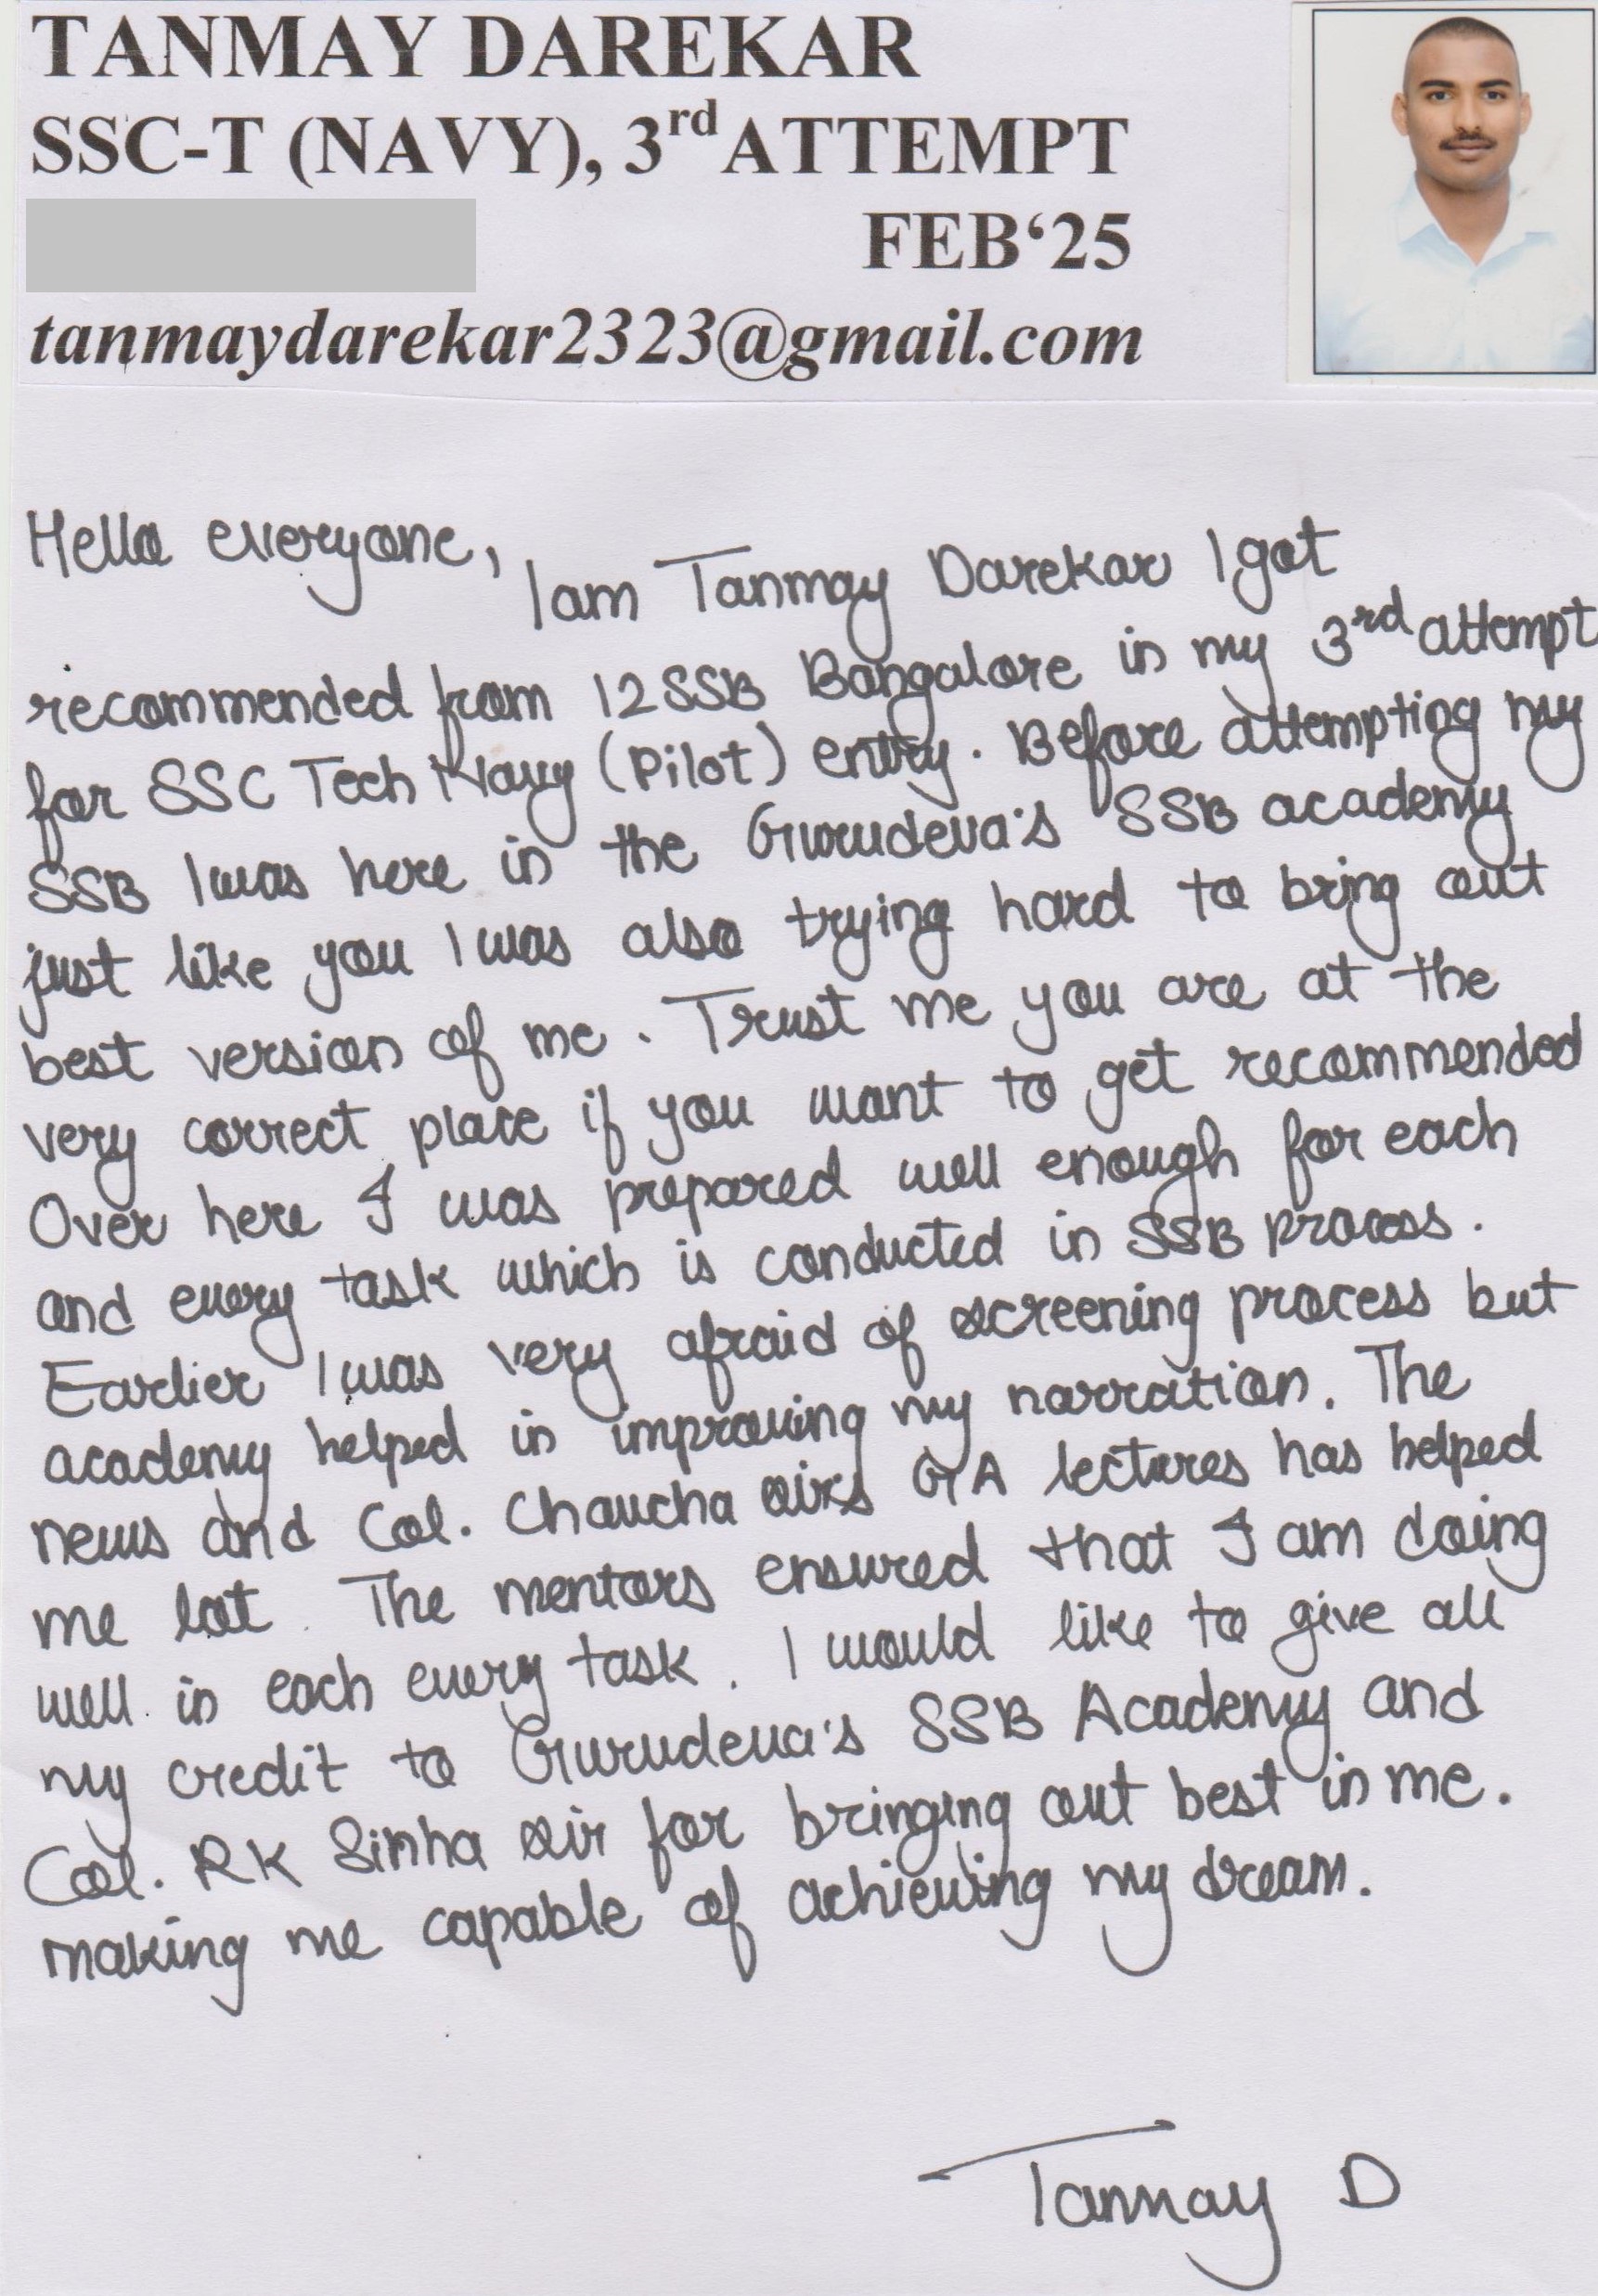 TANMAY DAREKAR
SSC-T (NAVY), 3rd ATTEMPT
FEB‘25
tanmaydarekar2323@gmail.com
Hello everyone,
I am Tanmay Darekar I got
recommended from 12SSB Bangalore in my 3rd attempt
for SSC Tech Navy (Pilot) entry. Before attempting my
SSB I was here in the Gurudeva's SSB academy
just like you I was also trying hard to bring out
best version of me. Trust me you are at the
very correct place if you want to get recommended
Over here I was prepared well enough for each
and every task which is conducted in SSB process.
Earlier I was very afraid of screening process but
academy helped in improving my narration. The
news and Col. Chaucha sir's GA lectures has helped
me lot. The mentors ensured that I am doing
well in each every task. I would like to give all
my credit to Gurudeva's SSB Academy and
Col. RK Sinha sir for bringing out best in me.
making me capable of achieving my dream.
Tanmay D